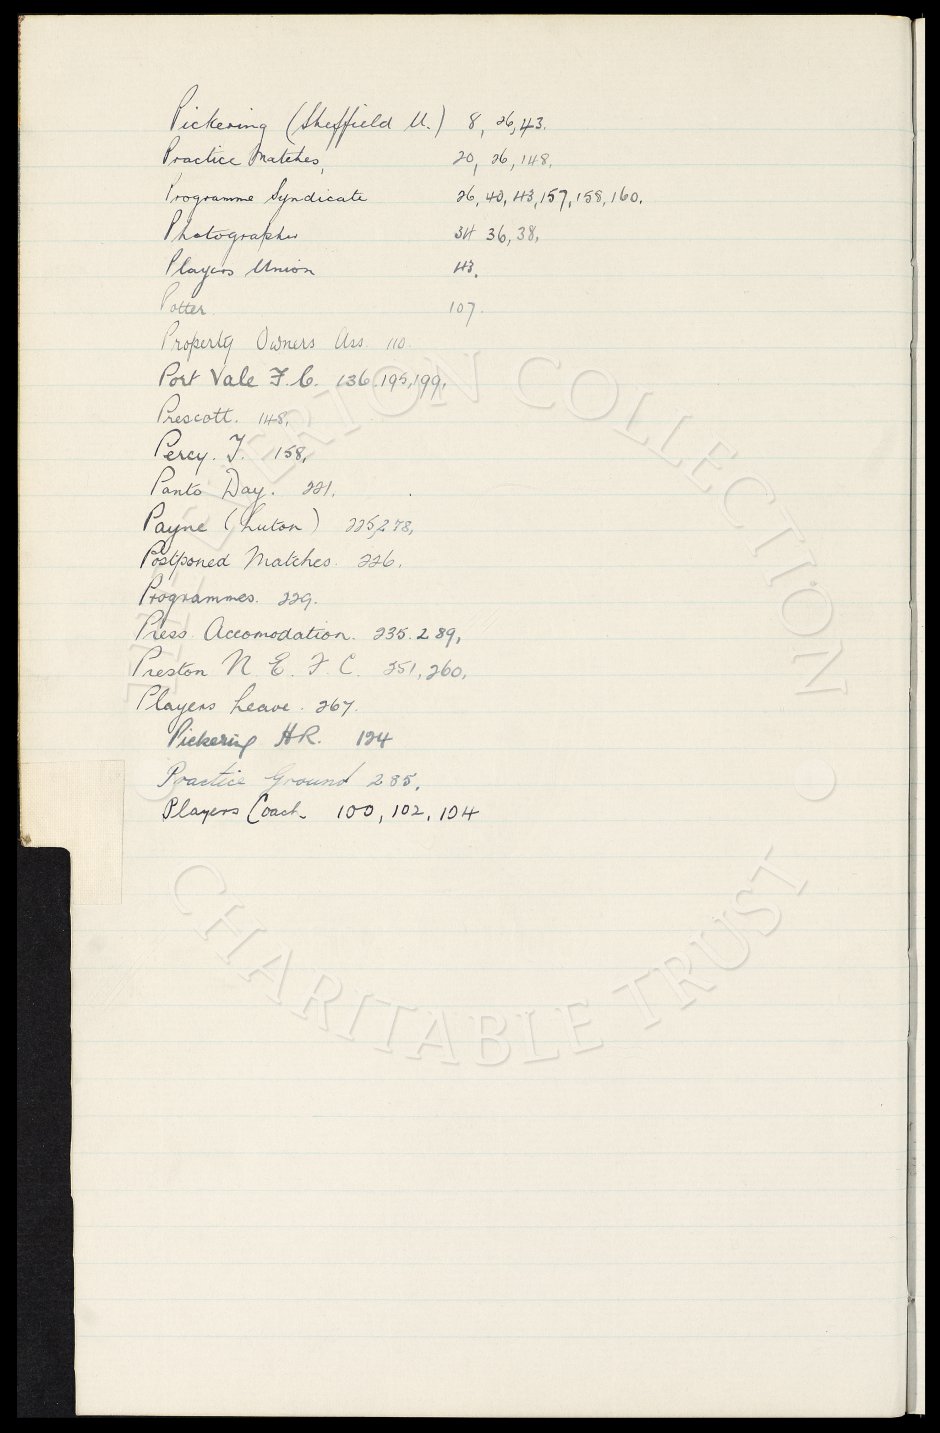 Pickering (Sheffield U.) 8, 26, 43.
Practice Matches, 20, 26, 148.
Programme Syndicate 26, 40, 43, 157, 158, 160.
Photographer 34 36, 38.
Players Union 43.
Potter. 107.
Property Owners Ass. 110.
Port Vale F.C. 136, 195, 199.
Prescott. 148.
Percy. J. 158,
Panto Day. 221.
Payne (Luton) 225, 278,
Postponed Matches. 226.
Programmes. 229.
Press Accomodation. 235. 289,
Preston N. E. F. C. 251, 260.
Players Leave. 267.
Pickering HR. 124
Practice Ground 285.
Players Coach. 100, 102, 104
THE EVERTON COLLECTION
CHARITABLE TRUST